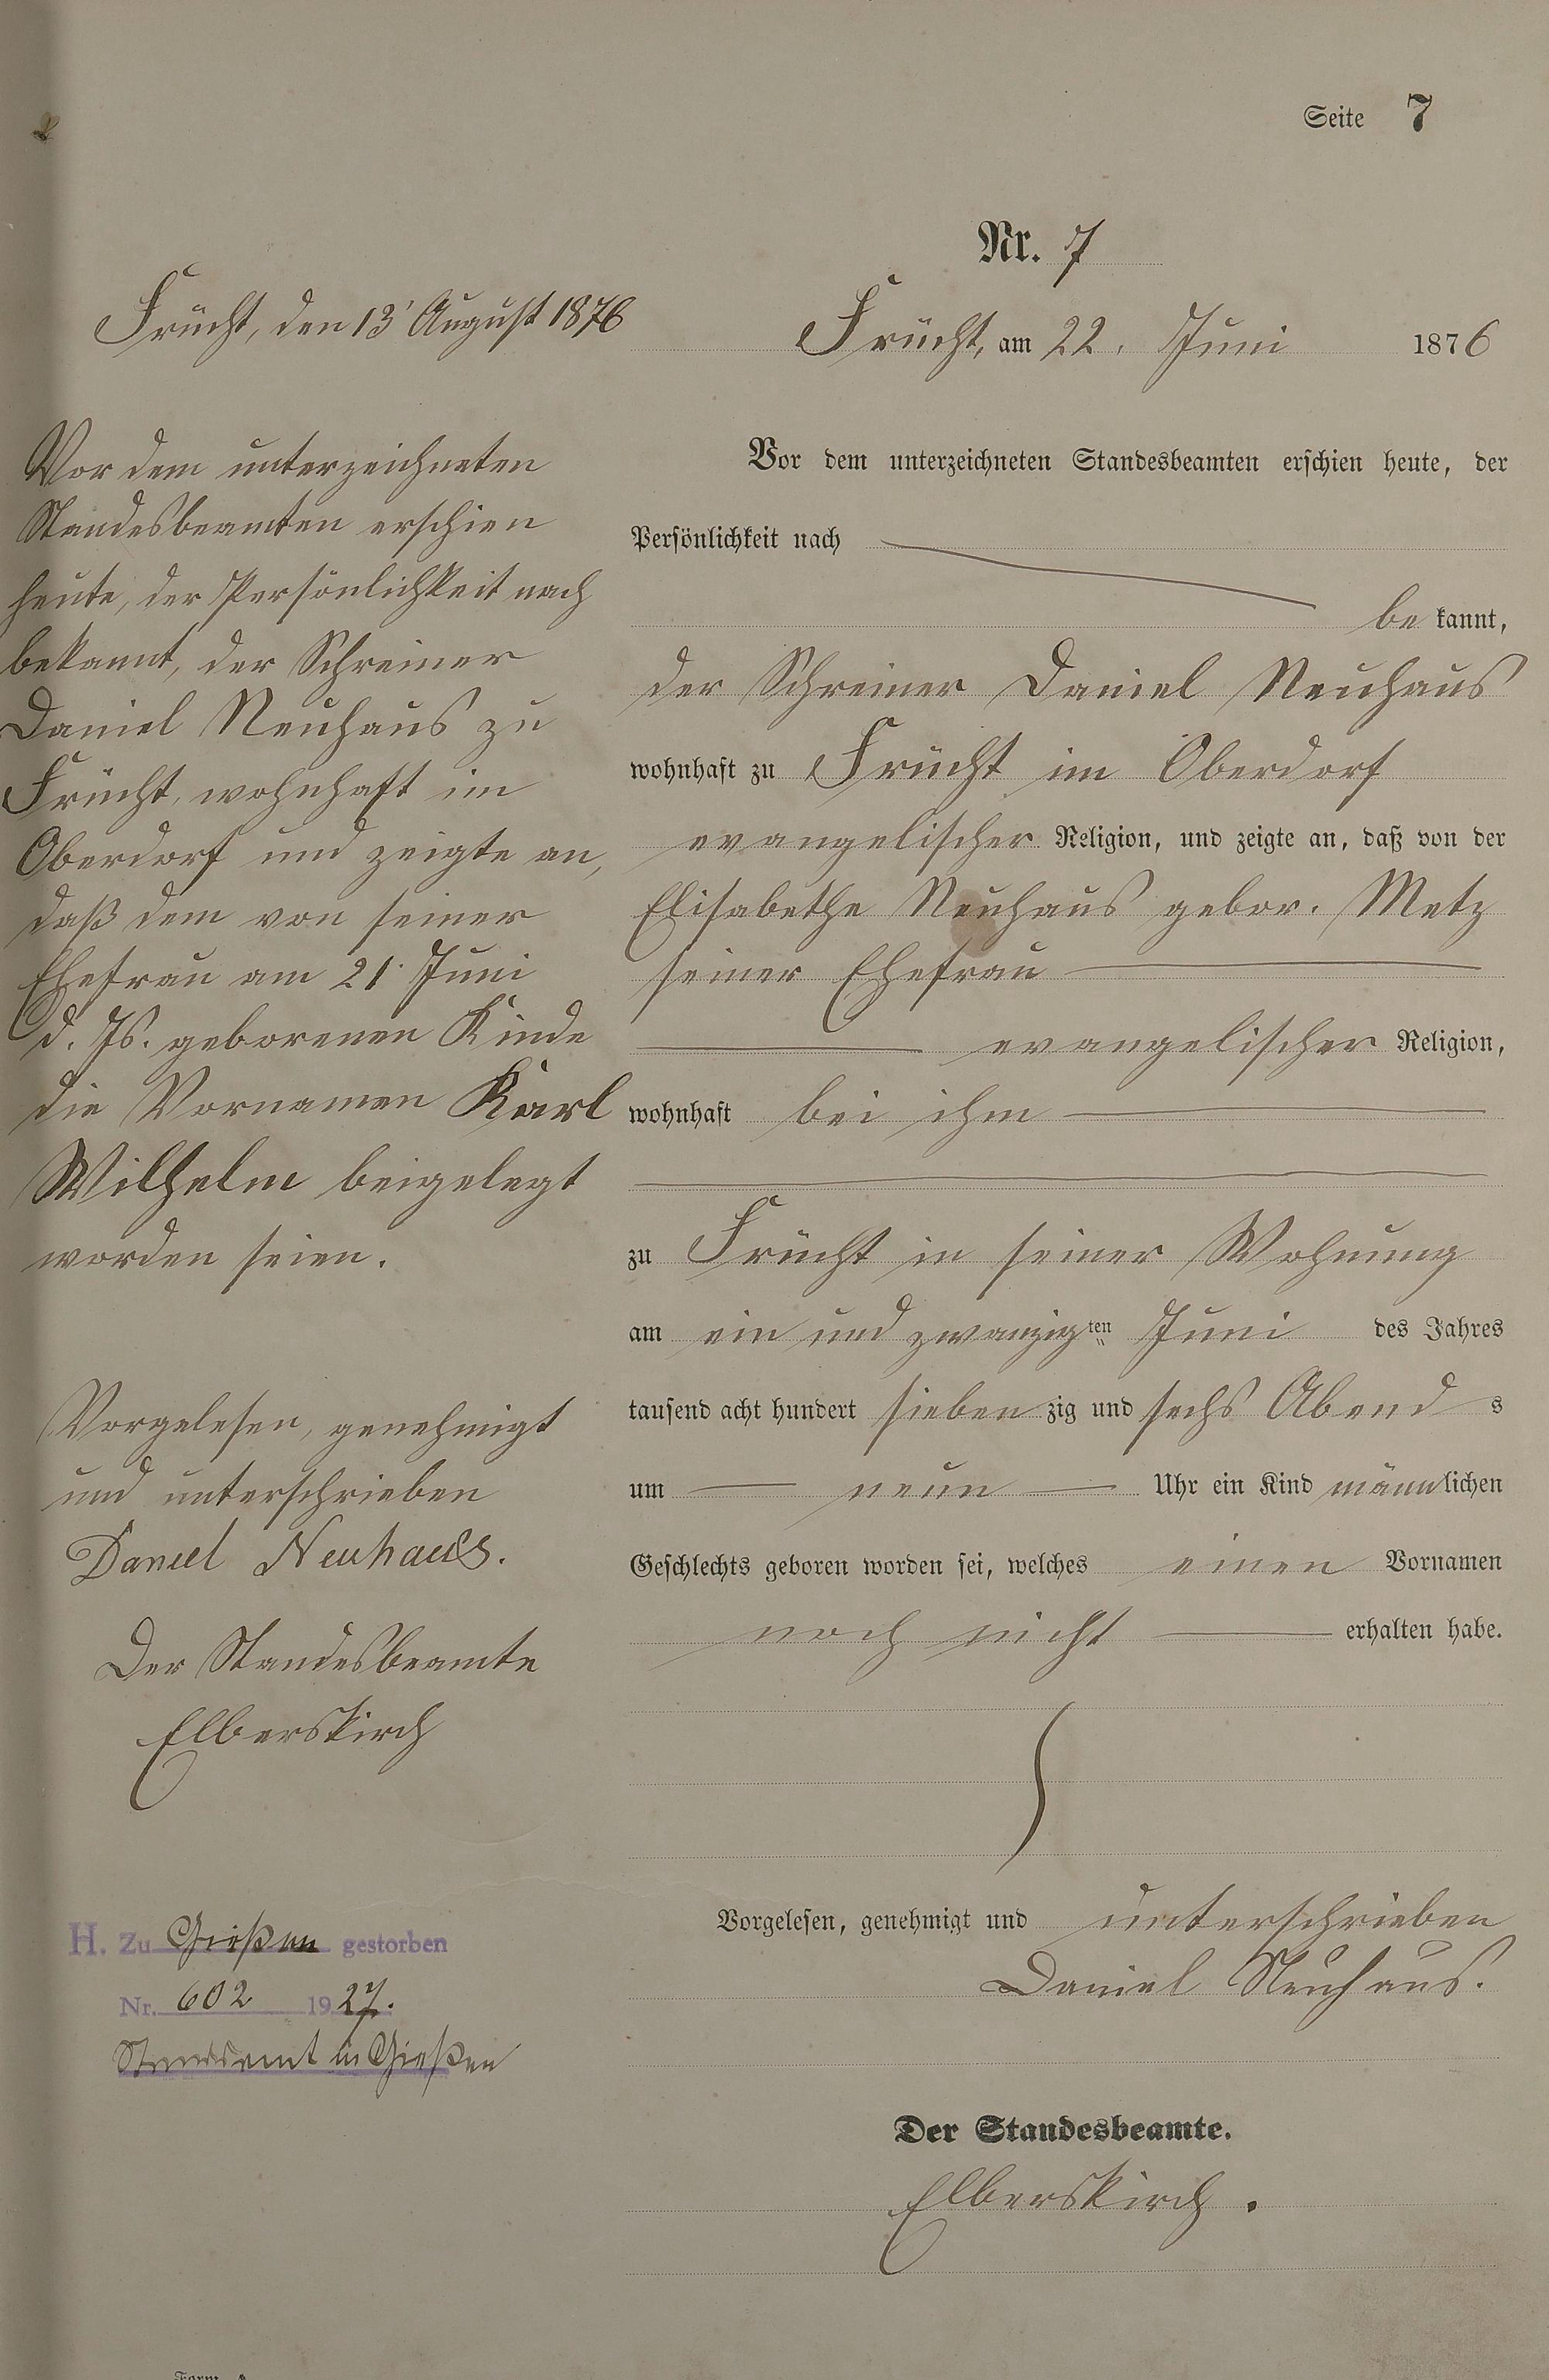 Seite 7
Nr. 7
Frücht, am 22. Juni 1876
Vor dem unterzeichneten Standesbeamten erschien heute, der
Persönlichkeit nach
be kannt,
der Schreiner Daniel Neuhaus
wohnhaft zu Frücht im Oberdorf
evangelischer Religion, und zeigte an, daß von der
Elisabethe Neuhaus gebor. Metz
seiner Ehefrau
evangelischer Religion,
wohnhaft bei ihm
zu Frücht in seiner Wohnung
am ein und zwanzigten Juni des Jahres
tausend acht hundert sieben zig und sechs Abend s
um neun Uhr ein Kind männlichen
Geschlechts geboren worden sei, welches einen Vornamen
noch nicht erhalten habe.
Vorgelesen, genehmigt und unterschrieben
Daniel Neuhaus.
Der Standesbeamte.
Elberskirch.
Frücht, den 13' August 1876
Vor dem unterzeichneten
Standesbeamten erschien
heute, der Persönlichkeit nach
bekannt, der Schreiner
Daniel Neuhaus zu
Frücht, wohnhaft im
Oberdorf und zeigte an,
daß dem von seiner
Ehefrau am 21. Juni
d. Js. geborenen Kinde
die Vornamen Karl
Wilhelm beigelegt
worden seien.
Vorgelesen, genehmigt
und unterschrieben
Daniel Neuhaus.
Der Standesbeamte
Elberskirch
H. Zu Gießen gestorben
Nr. 602 1927.
Standesamt in Gießen